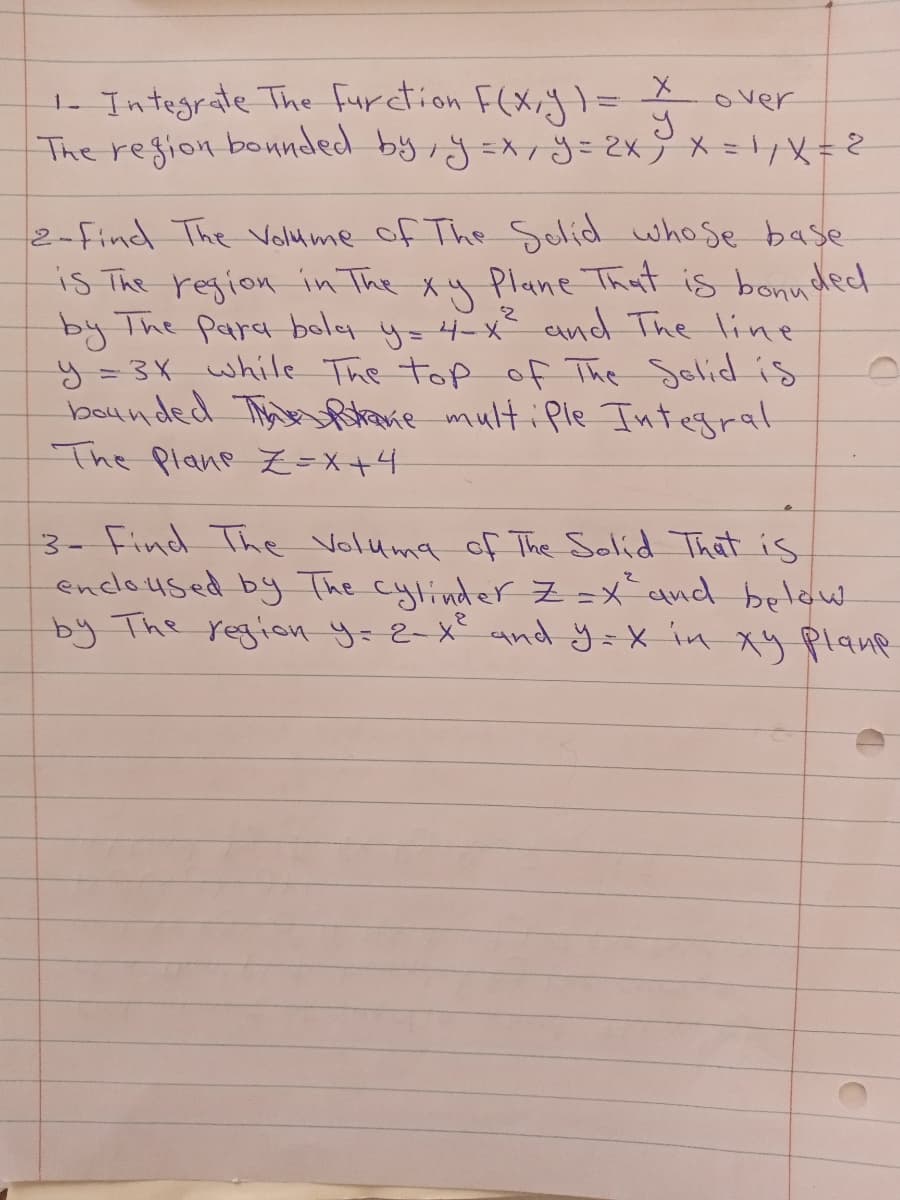 1- Integrate The furction F(x,y) = x/y over
The region bonnded by, y=x, y=2x, x=1, x=2
2-find The Volume of The Solid whose base
is The region in The xy Plane That is bonnded
by The Para bola y = 4-x² and The line
y = 3x while The top of The Solid is
bounded multiple Integral
The Plane Z=x+4
3- Find The Voluma of The Solid That is
encloused by The cylinder Z=x² and below
by The region y= 2-x² and y=x in xy Plane